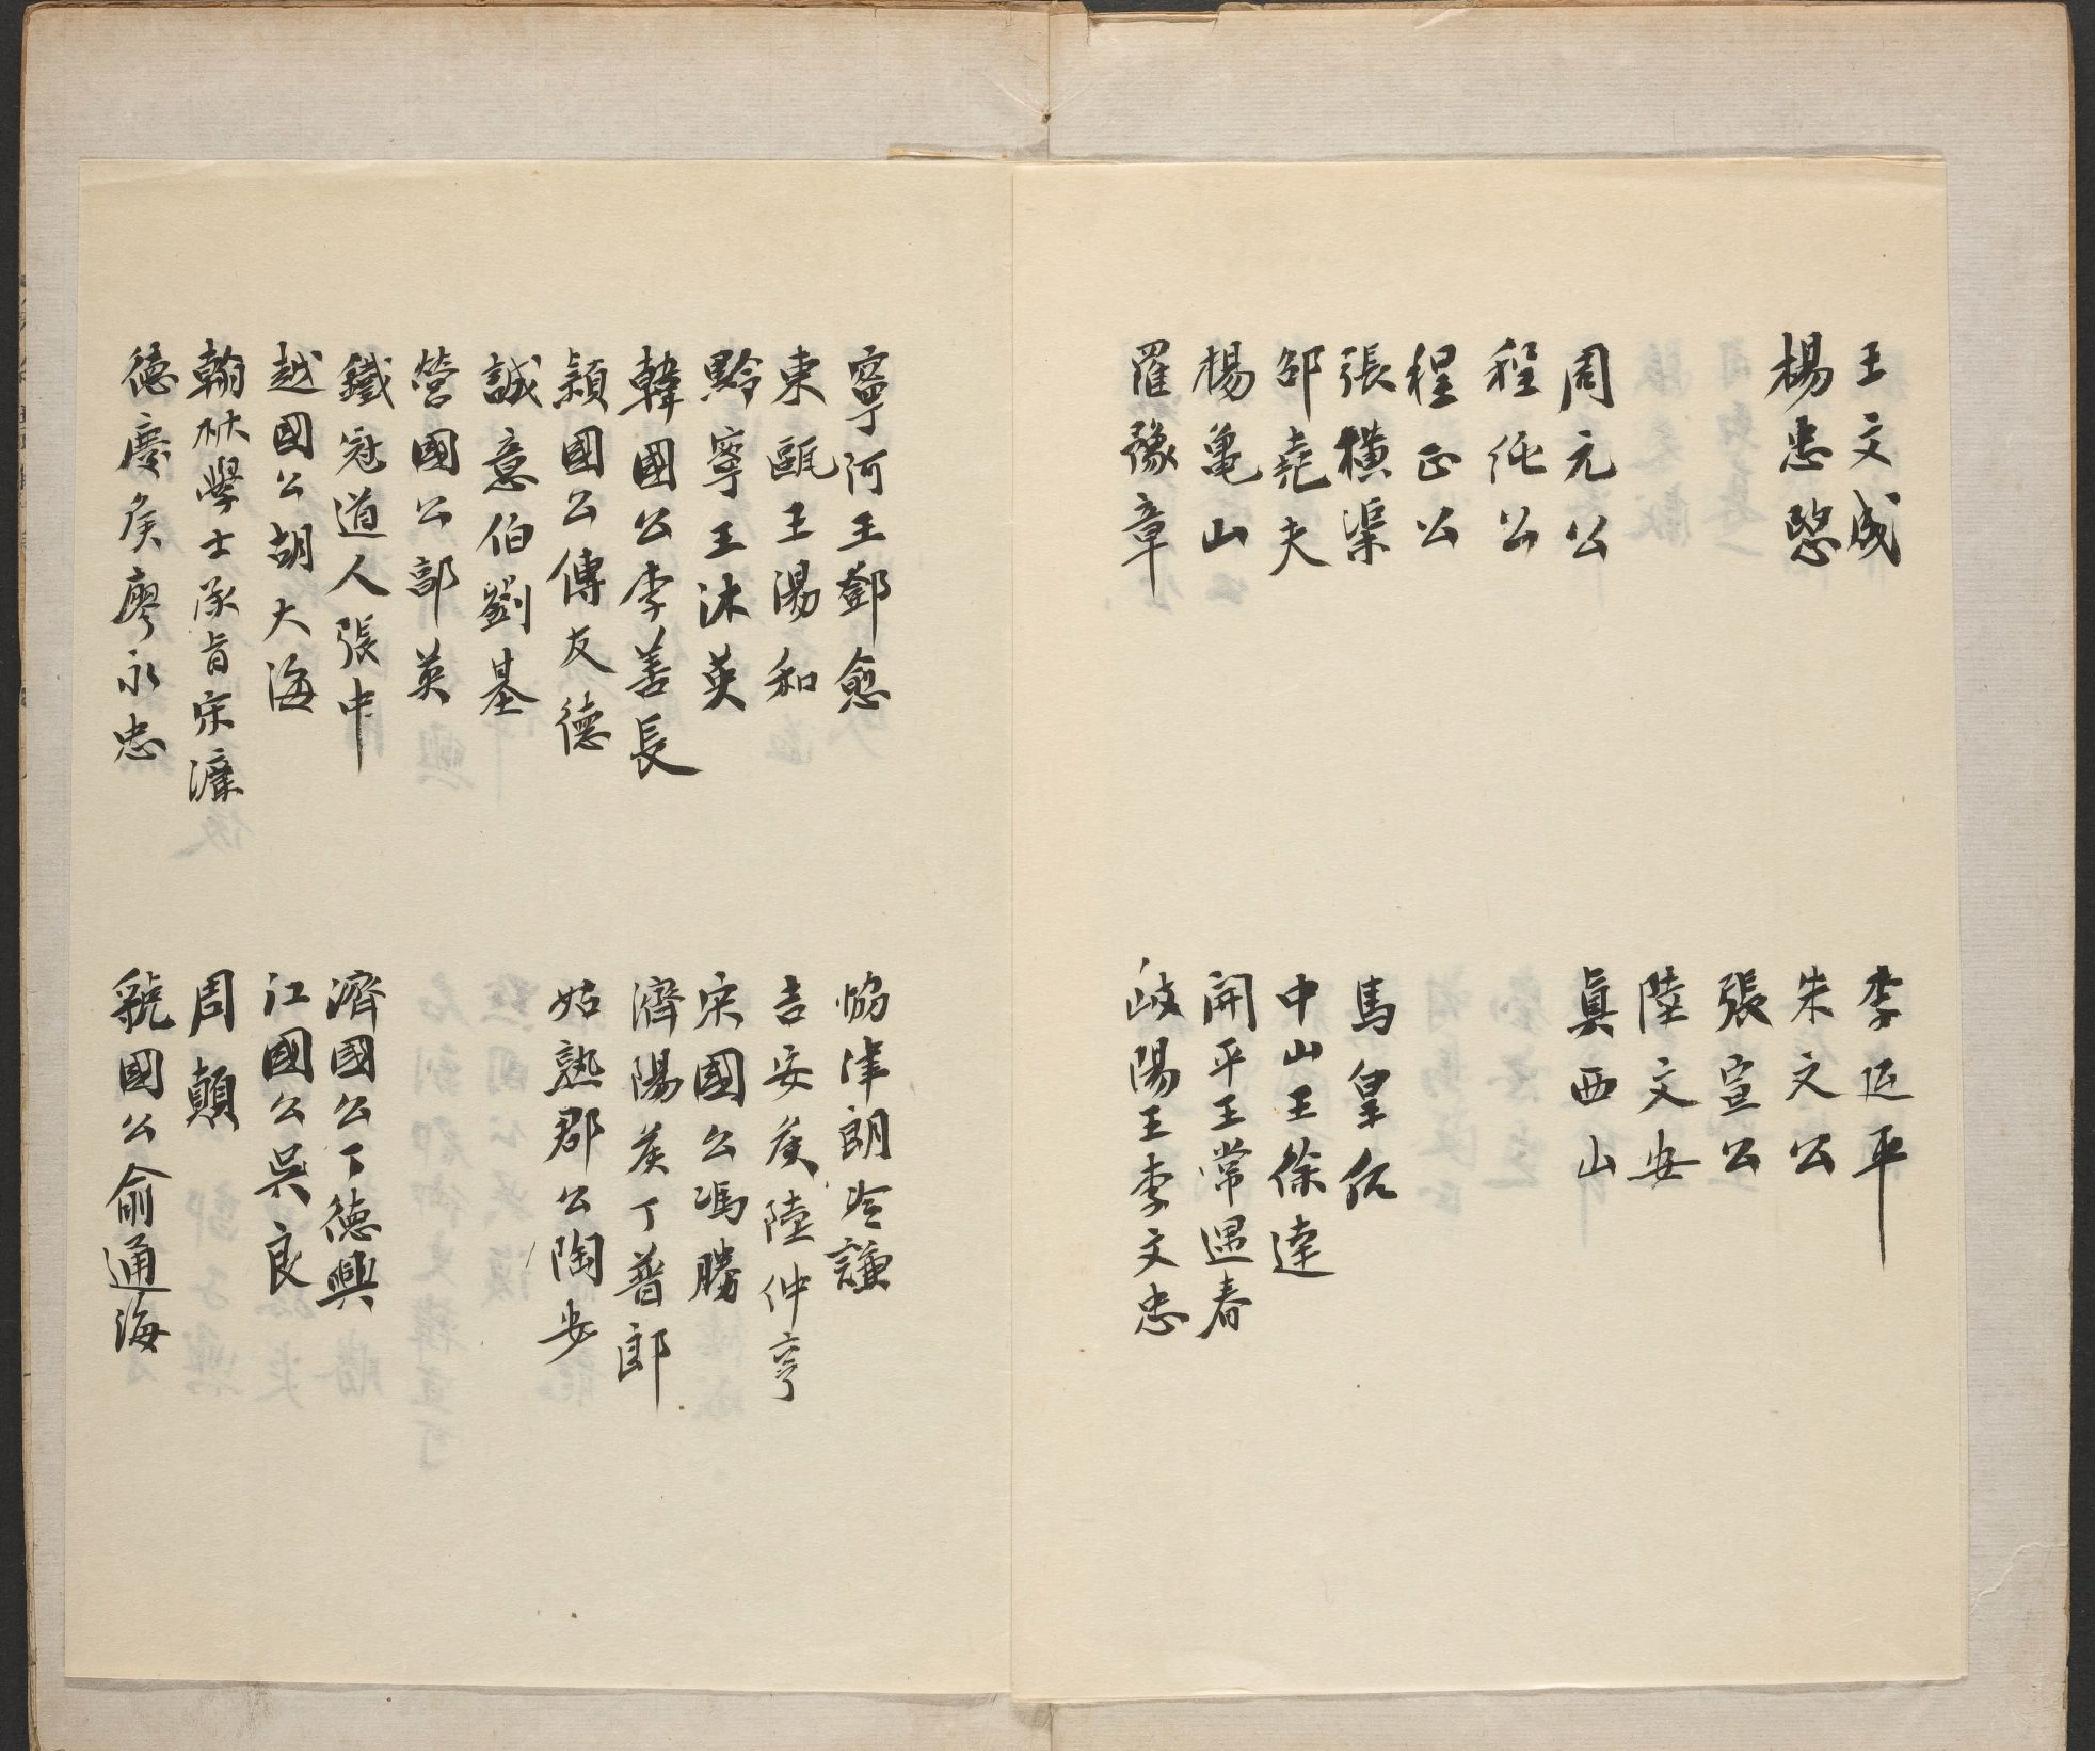 王文成
楊忠愍
周元公
程純公
程正公
張橫渠
邵堯夫
楊亀山
羅豫章
李延平
朱文公
張宣公
陸文安
眞西山
馬皇后
中山王徐達
開平王常遇春
岐陽王李文忠
寧河王鄧愈
東甌王湯和
黔寧王沐英
韓國公李善長
潁國公傅友德
誠意伯劉基
營國公郭英
鐵冠道人張中
越國公胡大海
翰林學士承旨宋濂
德慶矦廖永忠
協律朗冷謙
吉安矦陸仲亨
宋國公馮勝
濟陽矦丁普郎
姑熟郡公陶安
濟國公丁德興
江國公吳良
周顛
虢國公俞通海